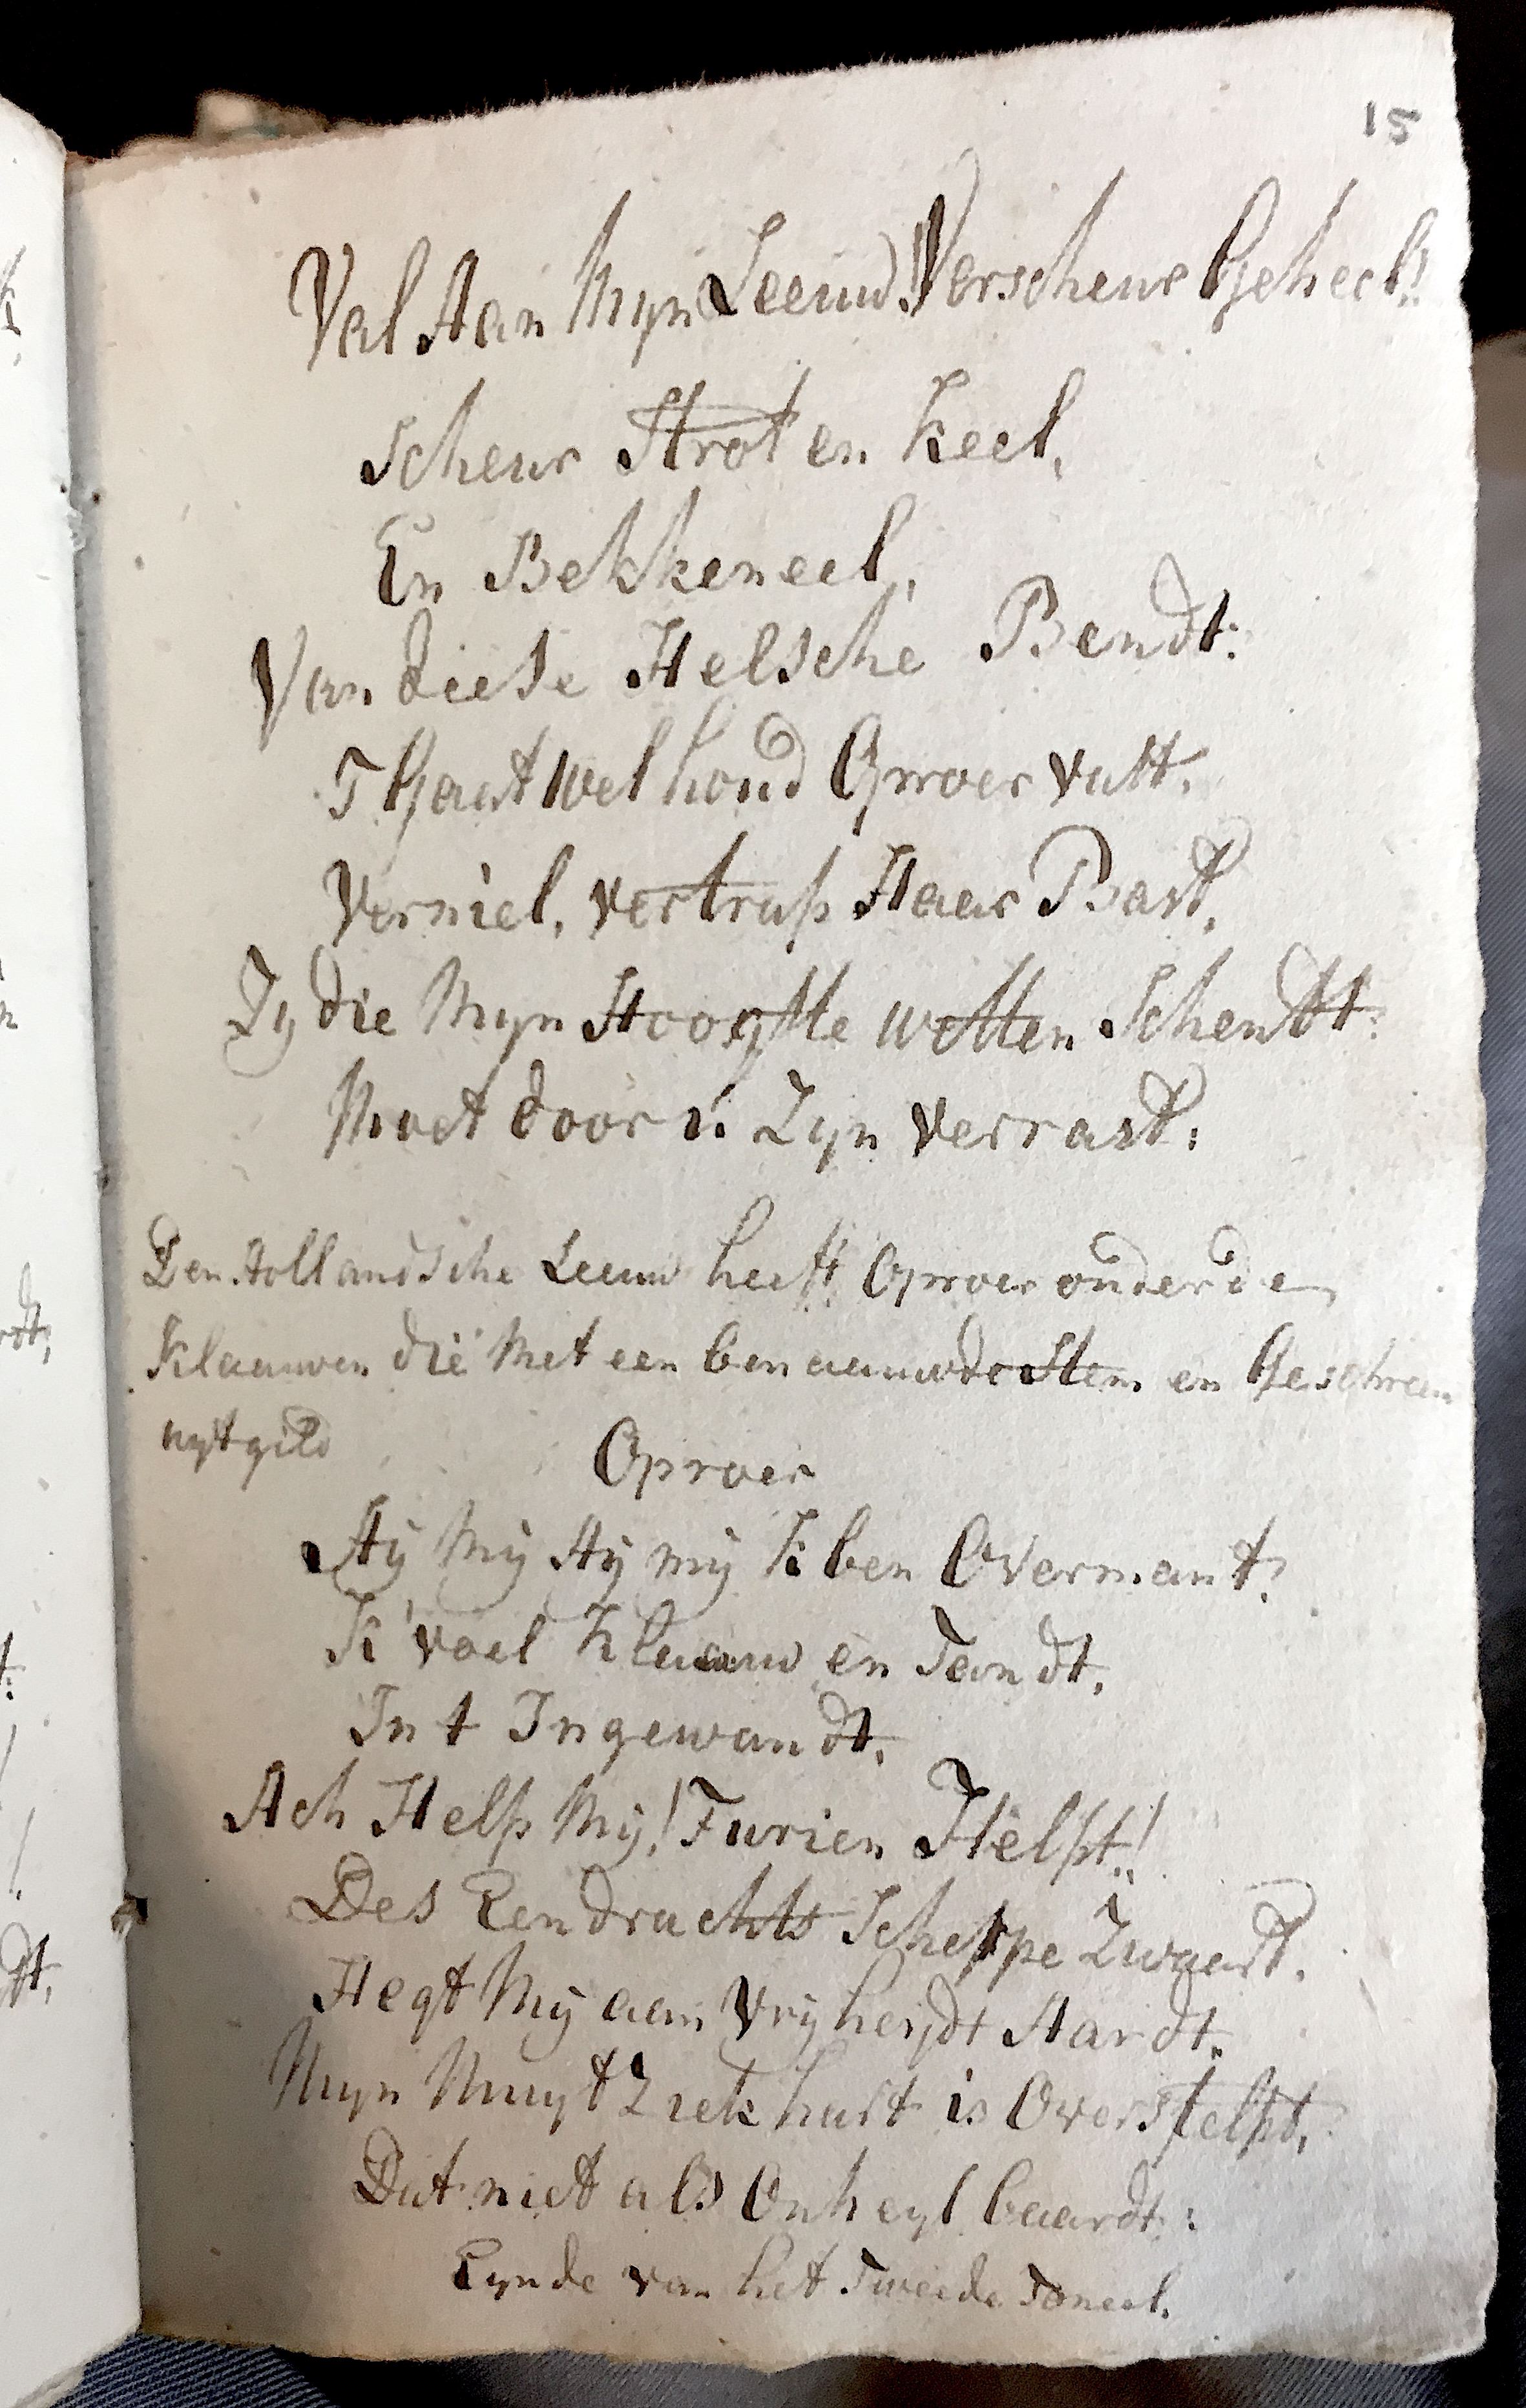 15
Val Aan Myn Leeuw! Verscheur Geheel!
Scheur Strot en Keel,
En Bekkeneel,
Van diese Helsche Bendt:
T Gaat wel houd Oproer vast,
Verniel, vertrap Haar Bast,
Zy die Myn Hoogtte wilten Schendt:
Moet door u Zyn verrast:
Den Hollandsche Leeuw heeft Oproer onder de
Klaauwen die Met een benaauwde Stem en Geschreeu
uytgild
Oproer
Aÿ Mÿ Aÿ mÿ K ben Overmant!
K'voel Klaauw en Tandt,
In t Ingewandt,
Ach Help Mÿ! Furien Helpt!
Des Eendrachts Scherpe Zwaard,
Hegt Mÿ aan Vrÿheydt Hardt,
Myn Muytziek hart is Overstelpt,
Dat niet als Onheyl baardt:
Eynde van het Tweede Toneel.